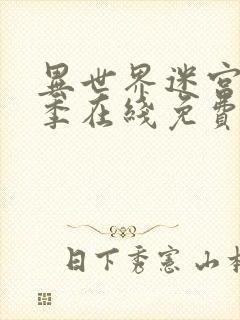 異世界迷宮
季在綫免費
日下秀憲 山本